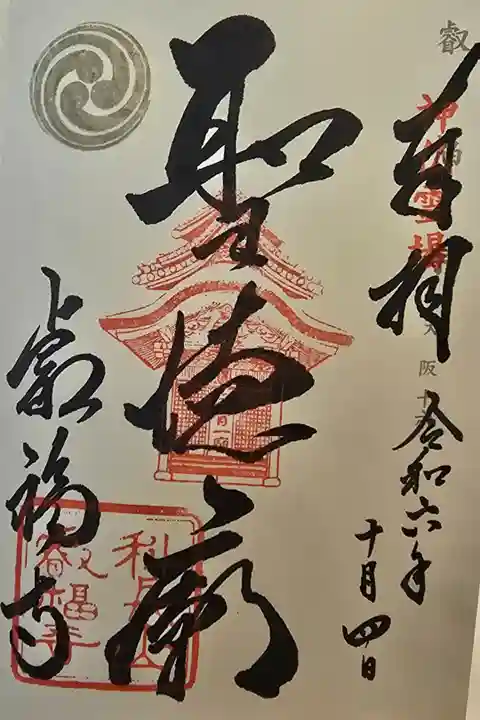 奉拝
令和六年
十月四日
聖徳廟
叡福寺
叡
神仏霊場
大阪十
叡福寺